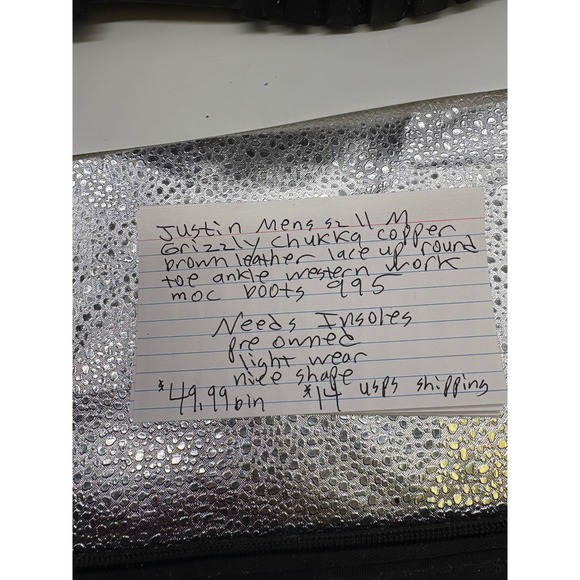 Justin Mens sz 11 M
Grizzly chukka copper
brown leather lace up round
toe ankle western work
moc boots 995
Needs Insoles
pre owned
light wear
nice shape
$49.99 bin $14 usps shipping